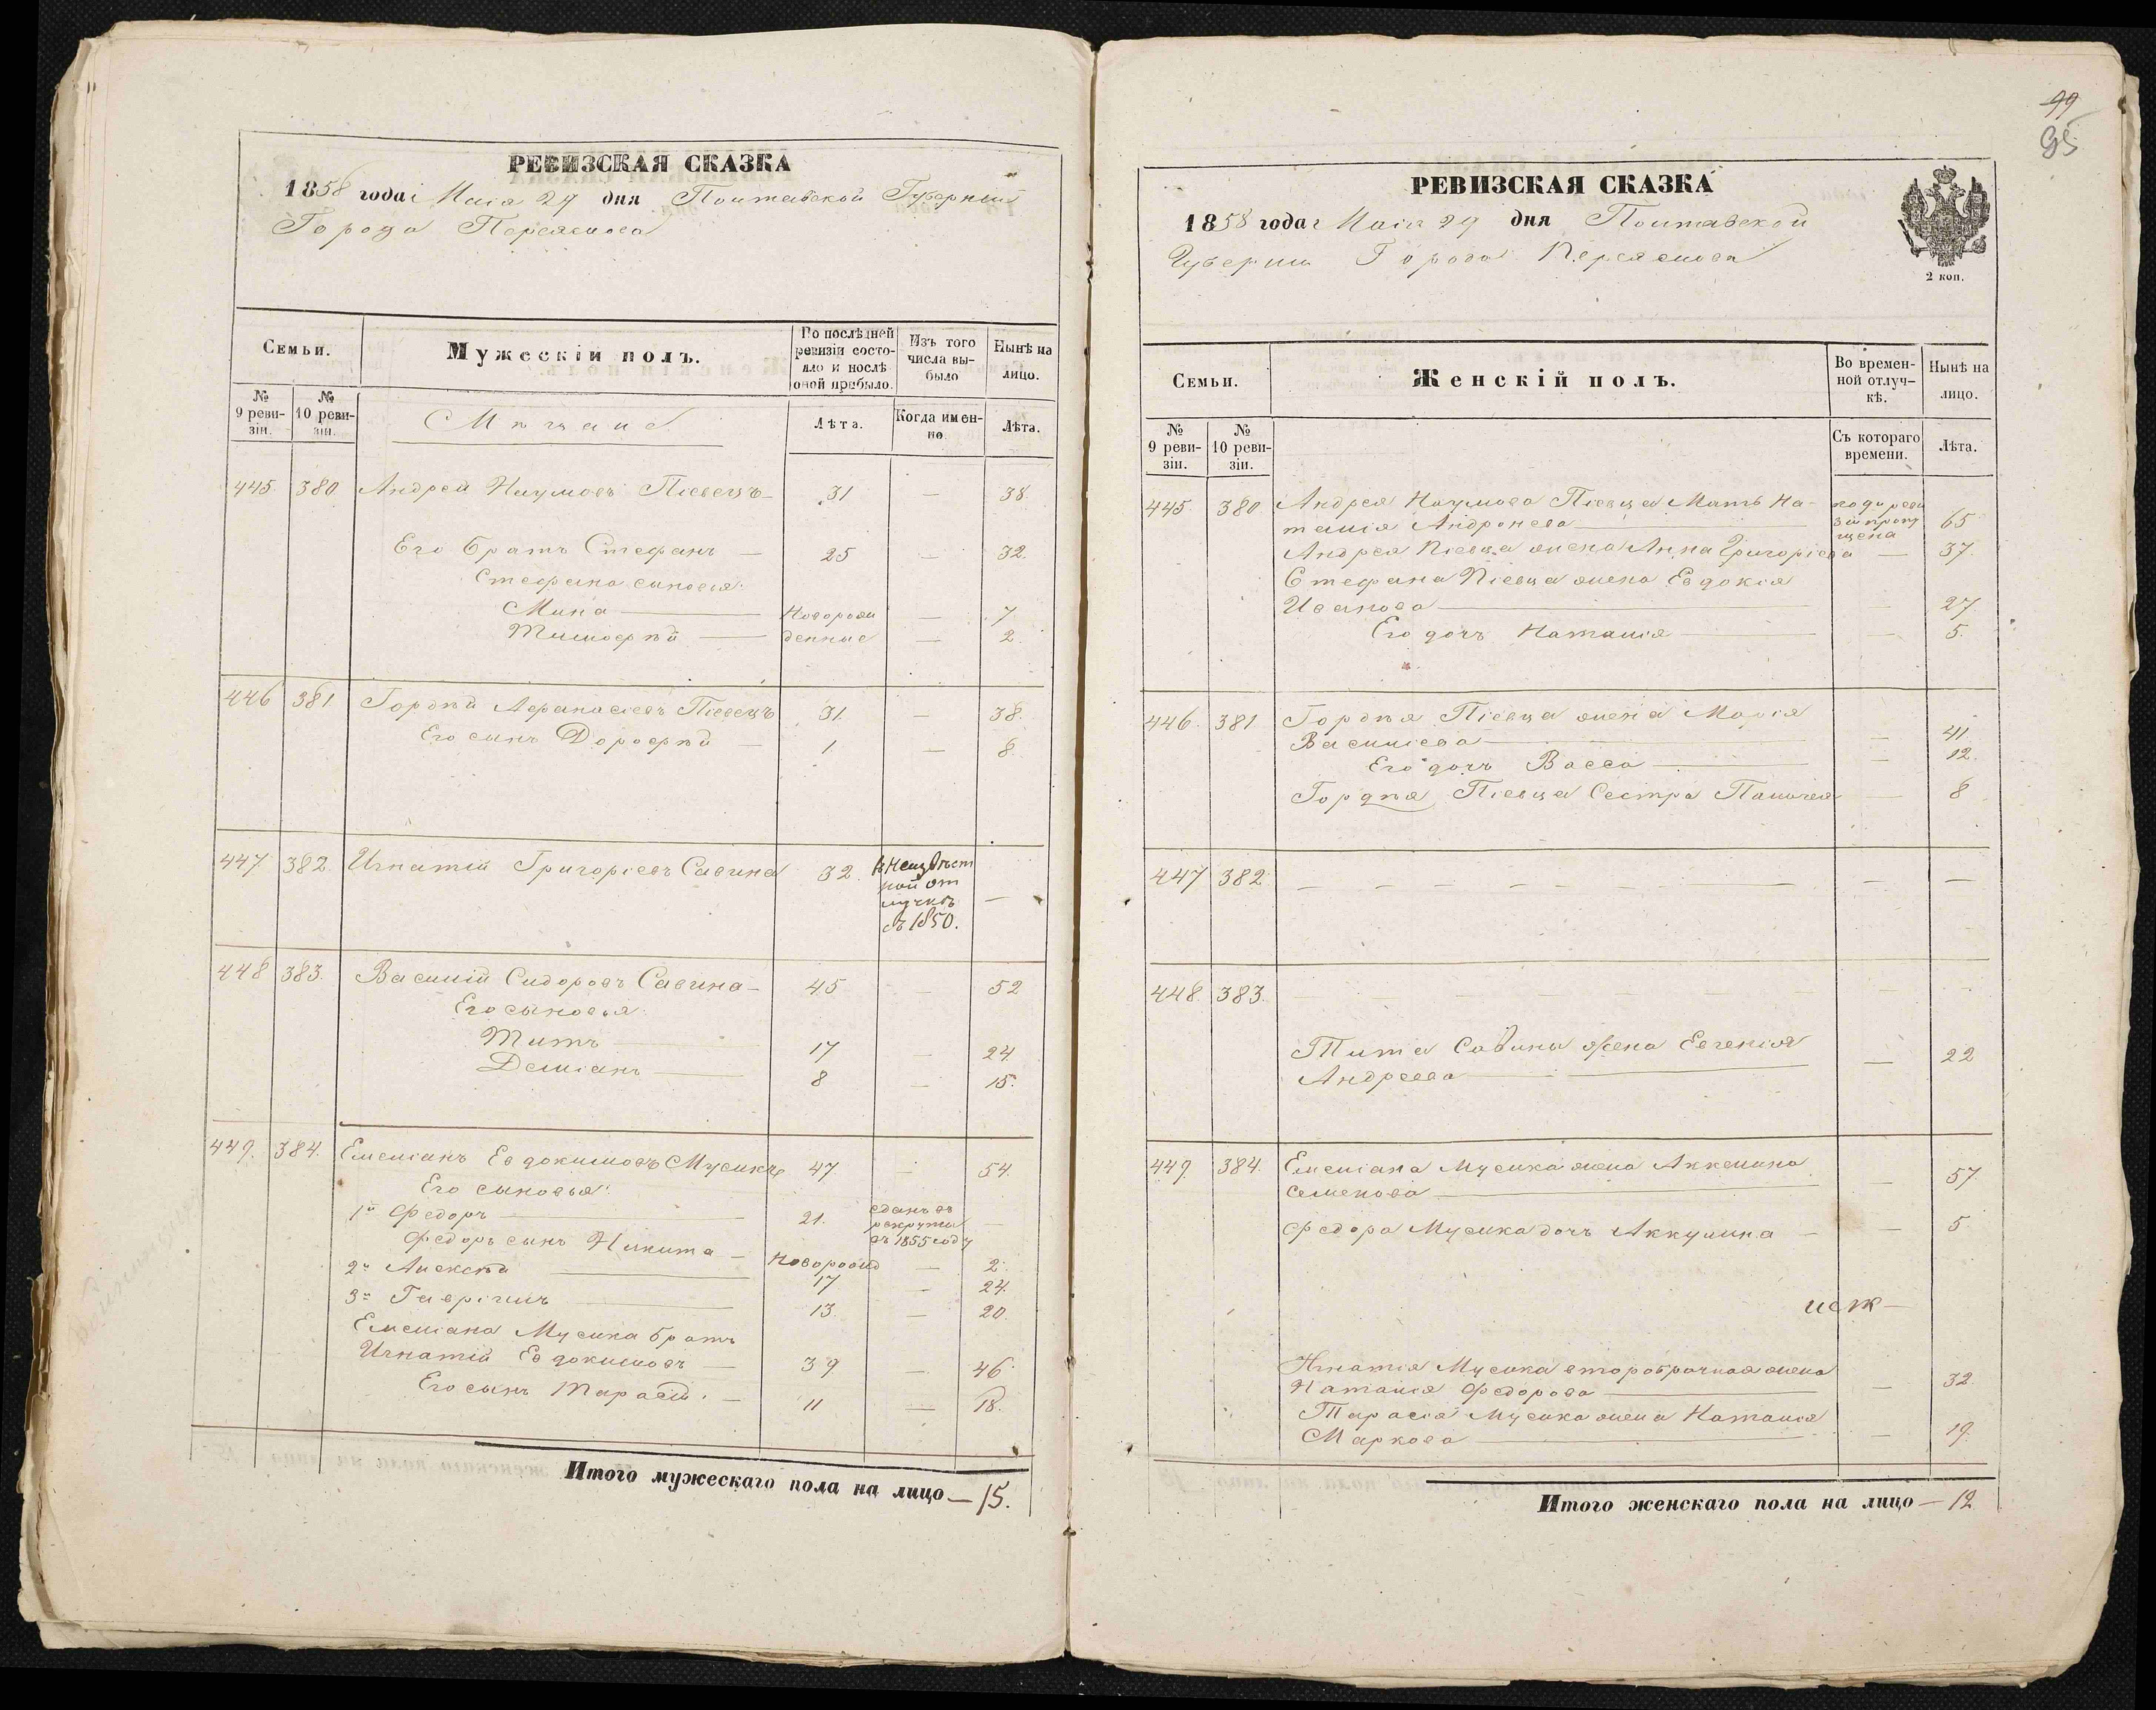 РЕВИЗСКАЯ СКАЗКА
1858 года Маія 29 дня Полтавской Губерніи
Города Переяслова
Семьи.
Мужескій полъ.
По послѣдней ревизіи состояло и послѣ оной прибыло.
Изъ того числа выбыло
Нынѣ на лицо.
№ 9 ревизіи.
№ 10 ревизіи.
Мѣщане
Лѣта.
Когда именно
Лѣта.
445. 380. Андрей Наумовъ Піевецъ 31 — 38.
Его братъ Стефанъ — 25 — 32.
Стефана сыновья:
Мина — Новорож — 7
Тимофѣй — денные — 2.
446 381 Гордѣй Афанасіевъ Піевецъ 31. — 38.
Его сынъ Дорофѣй — 1. — 8.
447. 382. Игнатій Григоріевъ Савина 32. въ неизвѣст
ной от
лучкѣ —
съ 1850.
448 383. Василій Сидоровъ Савина — 45 — 52
Его сыновья:
Титъ — 17 — 24
Демьянъ — 8 — 15.
449. 384. Емеліанъ Евдокимовъ Мусикъ 47. — 54.
Его сыновья:
1й Федоръ — 21. сданъ въ
рекруты —
въ 1855 году
Федоръ сынъ Никита — Новорожд — 2.
2й Алексѣй — 17 — 24.
3й Гавріилъ — 13. — 20.
Емеліана Мусика братъ
Игнатій Евдокимовъ — 39 — 46.
Его сынъ Тарасій. — 11 — 18.
Итого мужескаго пола на лицо — 15.
99
95
РЕВИЗСКАЯ СКАЗКА
1858 года Маія 29 дня Полтавской
Губерніи Города Переяслова
2 коп.
Семьи.
Женскій полъ.
Во временной отлучкѣ.
Нынѣ на лицо.
№ 9 ревизіи.
№ 10 ревизіи.
Съ котораго времени.
Лѣта.
445. 380. Андрея Наумова Піевца Мать На-
талія Андронева — 65
Андрея Піевца жена Анна Григоріева — 37.
Стефана Піевца жена Евдокія
Иванова — 27.
Его дочь Наталія — 5.
446. 381 Гордѣя Піевца жена Марія
Василіева — 41
Его дочь Васса — 12.
Гордѣя Піевца Сестра Палагея — 8
447 382 — — —
448. 383. — — —
Тита Савины жена Евгенія
Андреева — 22
449. 384. Емеліана Мусика жена Аккелина
Семенова — 57.
Федора Мусика дочь Аккулина — 5.
Игнатія Мусика второбрачная жена
Наталія Федорова — 32.
Тарасія Мусика жена Наталія
Маркова — 19.
Итого женскаго пола на лицо — 12